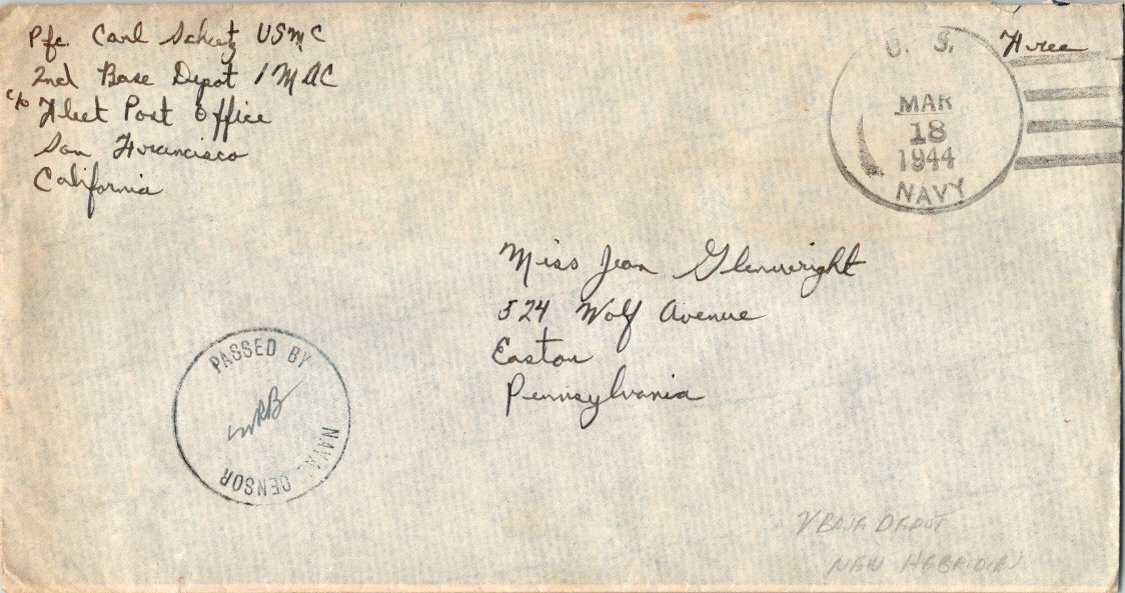 Pfc. Carl Schutz USMC
2nd Base Depot 1 MAC
c/o Fleet Post Office
San Francisco
California
Free
U. S.
MAR
18
1944
NAVY
Miss Jean Glenwright
524 Wolf Avenue
Easton
Pennsylvania
PASSED BY
NAVAL CENSOR
WRB
BASE DEPOT
NEW HEBRIDES